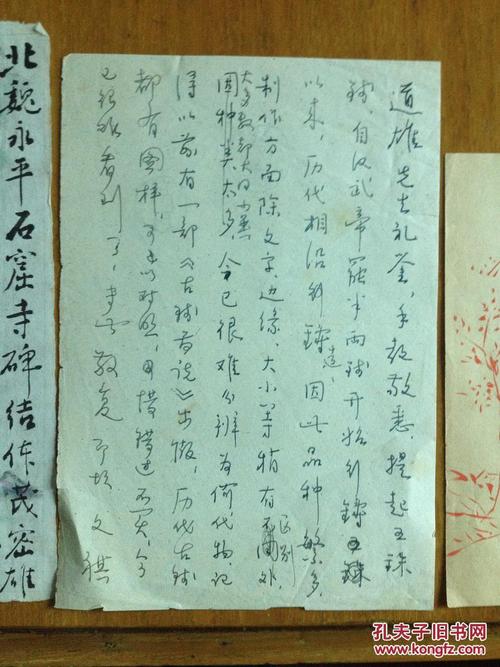 道雄先生礼鉴，手教敬悉，提起五铢
钱，自汉武帝罢半两钱开始行铸五铢
以来，历代相沿行铸造，因此品种繁多，
制作方面除文字边缘、大小等稍有区别外，
大多数都大同小异
因种类太多，今已很难分辨为何代物，记
得以前有一部《古钱 说》出版，历代古钱
都有图样，可以对照， 惜错过不买，今
已 看到了，专此敬复 即颂 文祺
北魏永平石窟寺碑结体茂密雄
孔夫子旧书网
www.kongfz.com